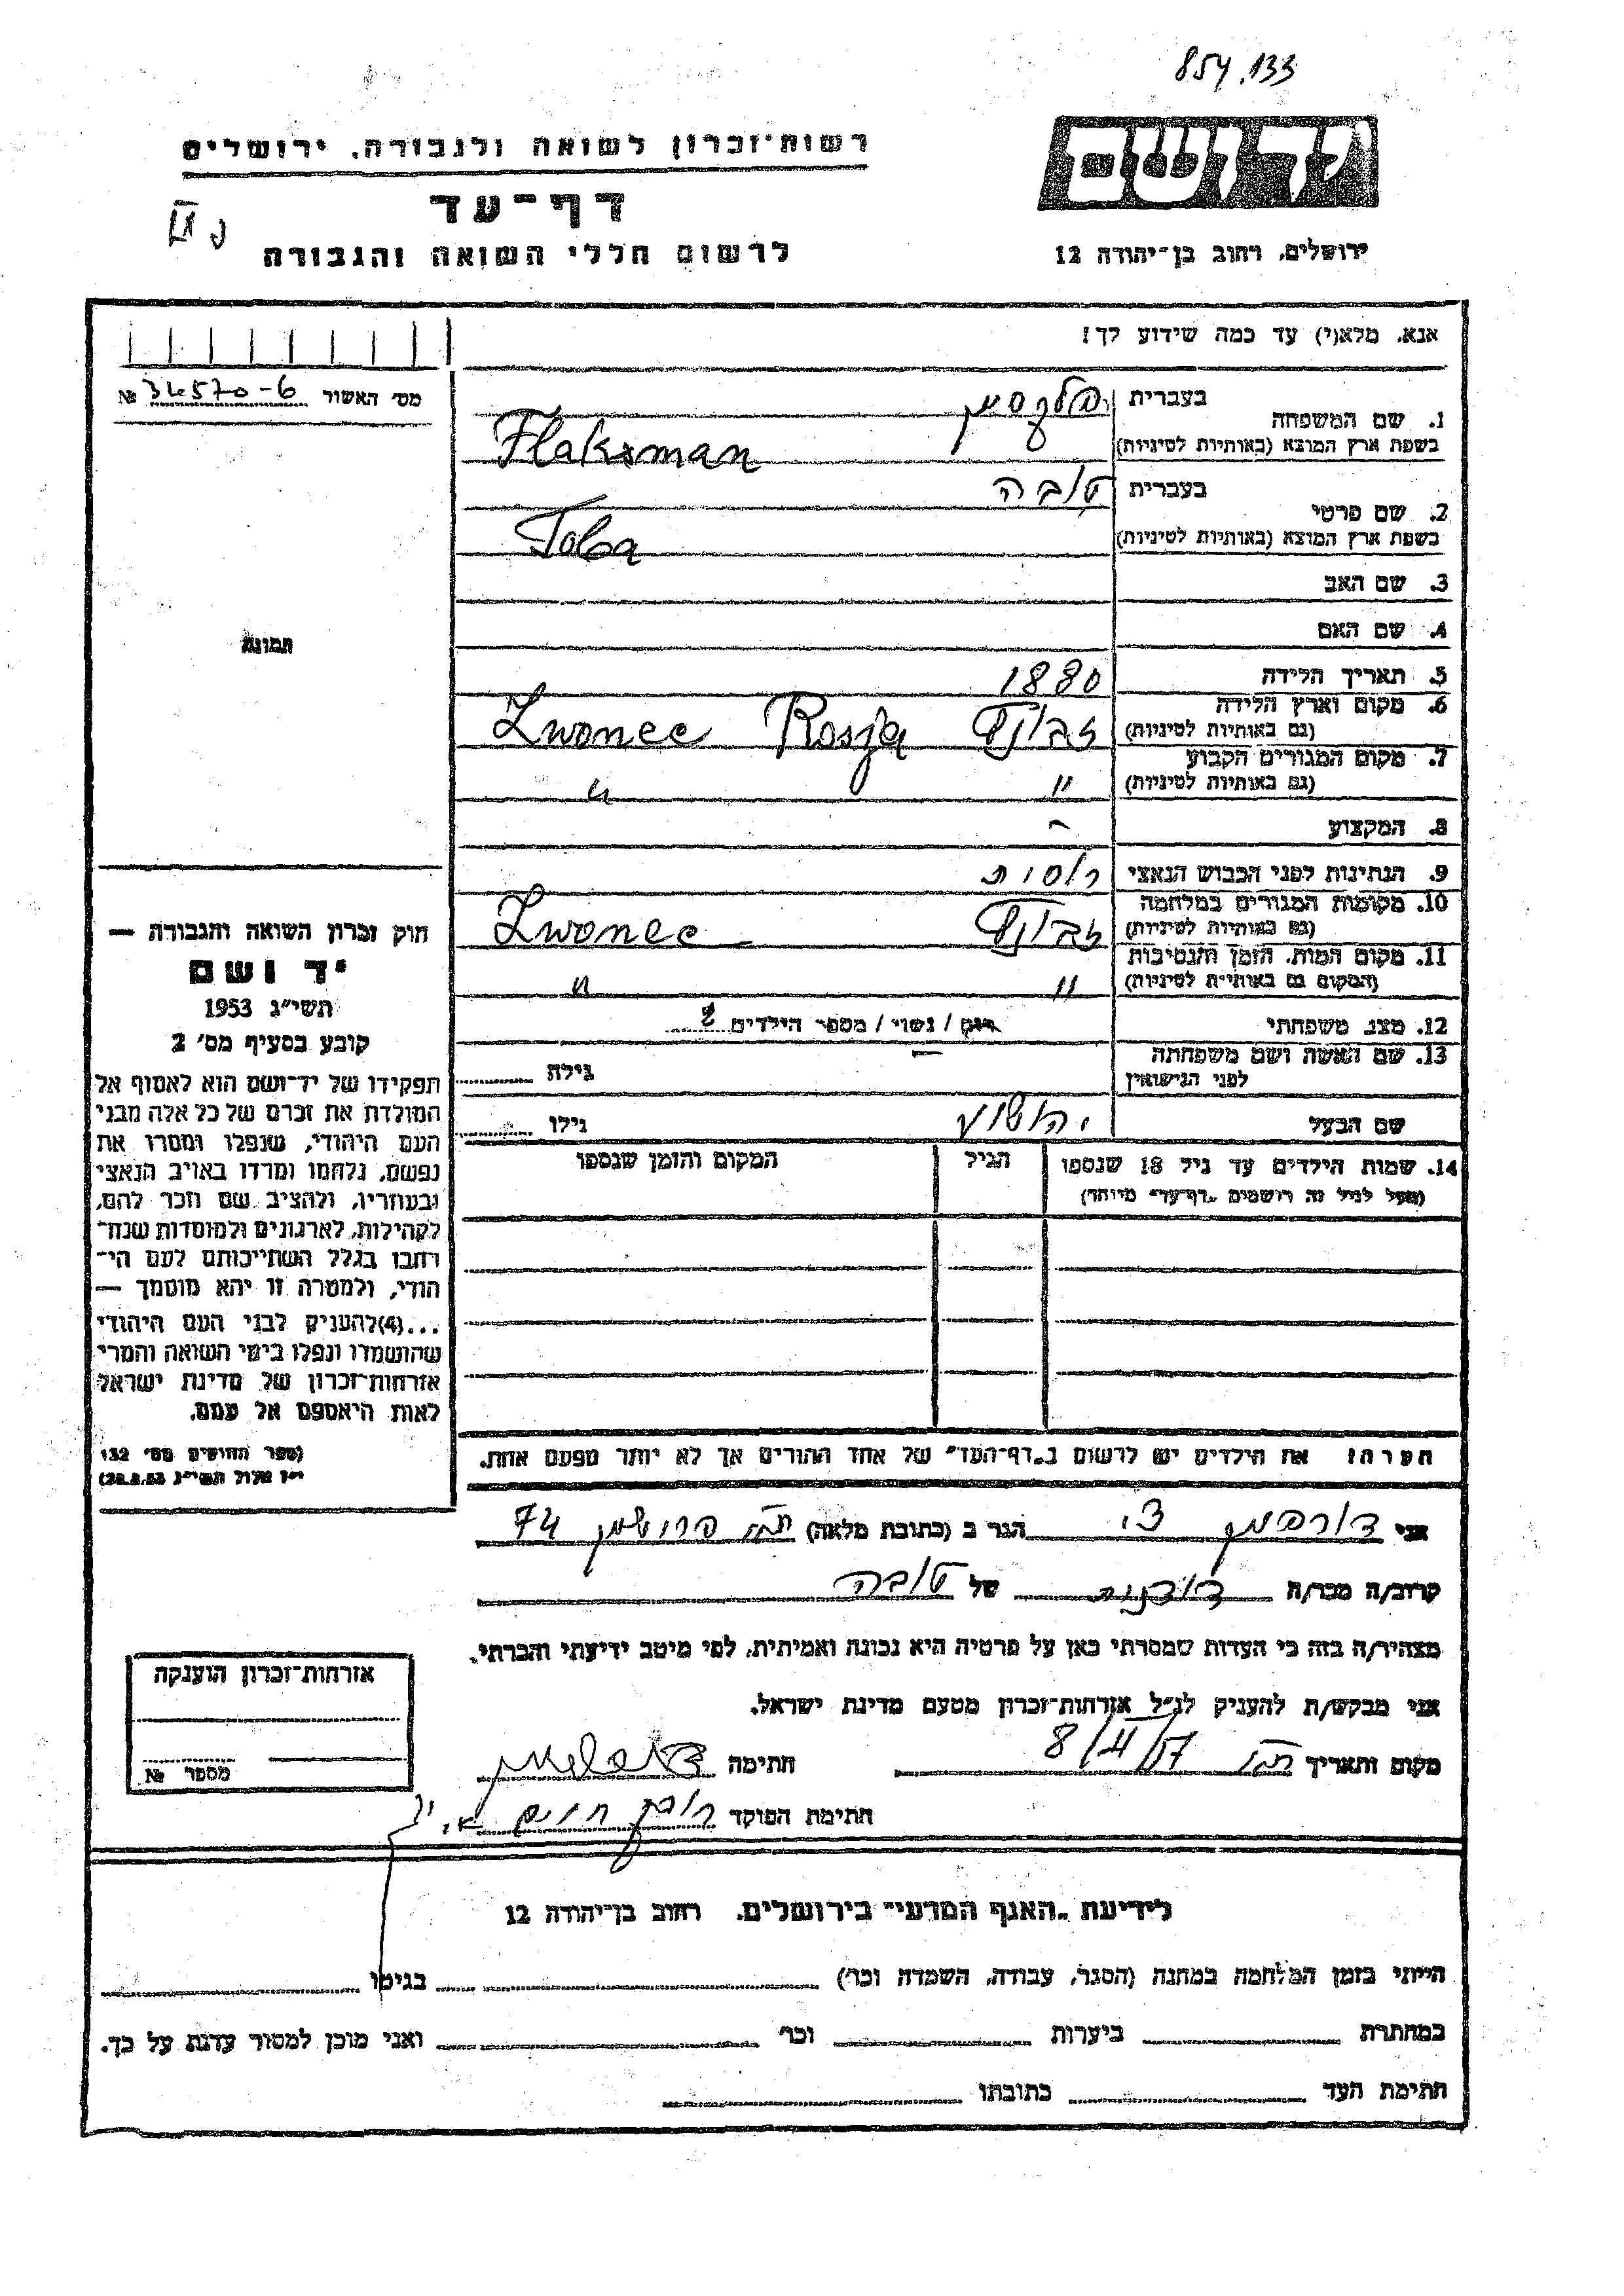 854.133
רשות־זכרון לשואה ולגבורה, ירושלים
דף־עד
לרשום חללי השואה והגבורה
יד ושם
ירושלים, רחוב בן־יהודה 12
אנא, מלא(י) עד כמה שידוע לך!
מס׳ האשור № 34570-6
1. שם המשפחה
בעברית פלקסמן
בשפת ארץ המוצא (באותיות לטיניות) Flaksman
2. שם פרטי
בעברית טובה
בשפת ארץ המוצא (באותיות לטיניות) Toba
3. שם האב
4. שם האם
תמונה
5. תאריך הלידה 1880
6. מקום וארץ הלידה
(גם באותיות לטיניות) Zwonec Rosja
7. מקום המגורים הקבוע
(גם באותיות לטיניות) " "
8. המקצוע -
9. הנתינות לפני הכבוש הנאצי רוסית
10. מקומות המגורים במלחמה
(גם באותיות לטיניות) Zwonec
11. מקום המות, הזמן והנסיבות
(המקום גם באותיות לטיניות) " "
12. מצב משפחתי רווק / נשוי / מספר הילדים 2
13. שם האשה ושם משפחתה
לפני הנישואין — גילה
שם הבעל יהושע גילו
14. שמות הילדים עד גיל 18 שנספו
(מעל לגיל זה רושמים „דף־עד" מיוחד)
הגיל
המקום והזמן שנספו
חוק זכרון השואה והגבורה —
יד ושם
תשי״ג 1953
קובע בסעיף מס׳ 2
תפקידו של יד־ושם הוא לאסוף אל
המולדת את זכרם של כל אלה מבני
העם היהודי, שנפלו ומסרו את
נפשם, נלחמו ומרדו באויב הנאצי
ובעוזריו, ולהציב שם וזכר להם,
לקהילות, לארגונים ולמוסדות שנח־
רבו בגלל השתייכותם לעם הי־
הודי, ולמטרה זו יהא מוסמך —
...(4) להעניק לבני העם היהודי
שהושמדו ונפלו בימי השואה והמרי
אזרחות־זכרון של מדינת ישראל
לאות היאספם אל עמם.
(ספר החוקים מס׳ 132
י״ז אלול תשי״ג 28.8.53)
הערה: את הילדים יש לרשום ב„דף־העד" של אחד ההורים אך לא יותר מפעם אחת.
אני דורפמן הגר ב (כתובת מלאה) 74
קרוב/ה מכר/ה של טובה
מצהיר/ה בזה כי העדות שמסרתי כאן על פרטיה היא נכונה ואמיתית, לפי מיטב ידיעתי והכרתי.
אני מבקש/ת להעניק לנ״ל אזרחות־זכרון מטעם מדינת ישראל.
מקום ותאריך 8/4/57 חתימה
חתימת הפוקד
אזרחות־זכרון הוענקה
מספר №
לידיעת „האגף המדעי" בירושלים, רחוב בן־יהודה 12
הייתי בזמן המלחמה במחנה (הסגר, עבודה, השמדה וכו׳) בגיטו
במחתרת ביערות וכו׳ ואני מוכן למסור עדות על כך.
חתימת העד כתובתו